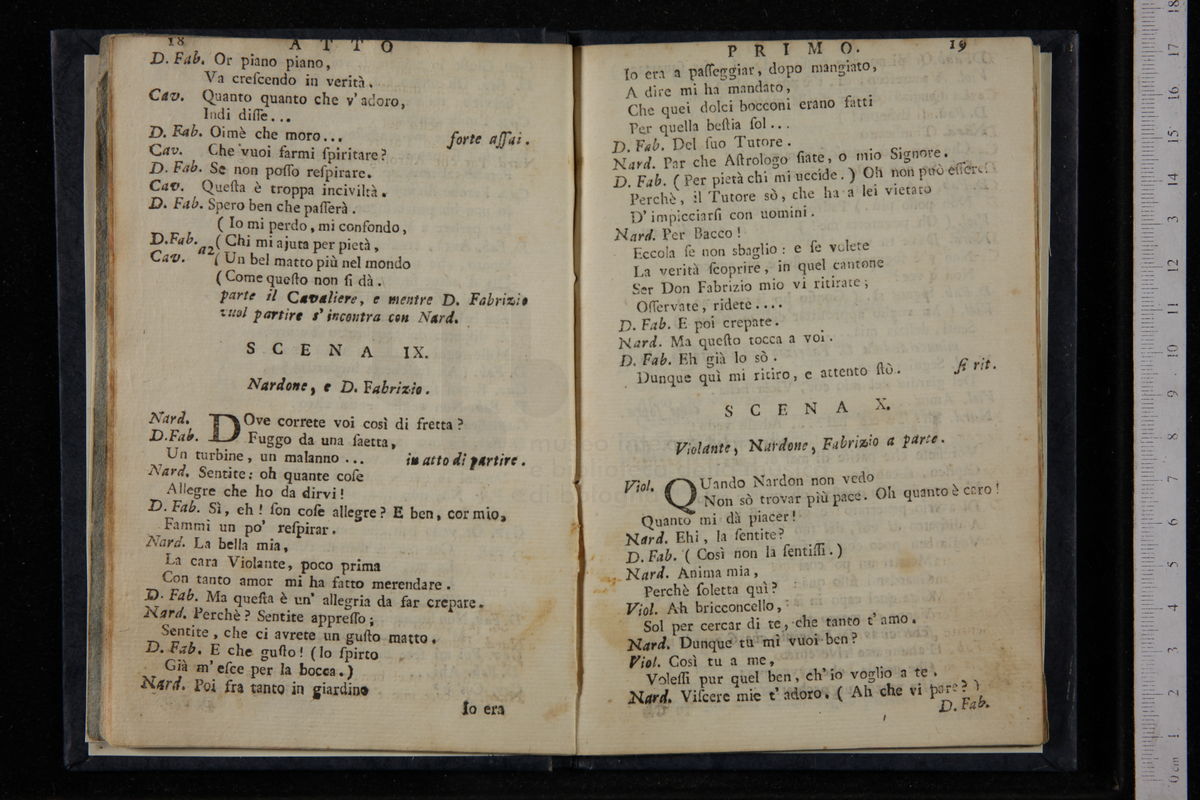 18 ATTO
D. Fab. Or piano piano,
Va creſcendo in verità.
Cav. Quanto quanto che v'adoro,
Indi diſſe...
D. Fab. Oimè che moro... forte aſſai.
Cav. Che vuoi farmi ſpiritare?
D. Fab. Se non poſſo reſpirare.
Cav. Queſta è troppa inciviltà.
D. Fab. Spero ben che paſſerà.
( Io mi perdo, mi confondo,
D.Fab. ( Chi mi ajuta per pietà,
Cav. a2 ( Un bel matto più nel mondo
( Come queſto non ſi dà.
parte il Cavaliere, e mentre D. Fabrizio
vuol partire s'incontra con Nard.
SCENA IX.
Nardone, e D. Fabrizio.
Nard. DOve correte voi così di fretta?
D.Fab. Fuggo da una ſaetta,
Un turbine, un malanno ... in atto di partire.
Nard. Sentite: oh quante coſe
Allegre che ho da dirvi!
D. Fab. Sì, eh! ſon coſe allegre? E ben, cor mio,
Fammi un po' reſpirar.
Nard. La bella mia,
La cara Violante, poco prima
Con tanto amor mi ha fatto merendare.
D. Fab. Ma queſta è un' allegria da far crepare.
Nard. Perchè? Sentite appreſſo;
Sentite, che ci avrete un guſto matto.
D. Fab. E che guſto! (lo ſpirto
Già m'eſce per la bocca.)
Nard. Poi fra tanto in giardino
Io era
PRIMO. 19
Io era a paſſeggiar, dopo mangiato,
A dire mi ha mandato,
Che quei dolci bocconi erano fatti
Per quella beſtia ſol...
D. Fab. Del ſuo Tutore.
Nard. Par che Aſtrologo ſiate, o mio Signore.
D. Fab. ( Per pietà chi mi uccide. ) Oh non può eſſere!
Perchè, il Tutore sò, che ha a lei vietato
D'impicciarſi con uomini.
Nard. Per Bacco!
Eccola ſe non sbaglio: e ſe volete
La verità ſcoprire, in quel cantone
Ser Don Fabrizio mio vi ritirate;
Oſſervate, ridete....
D. Fab. E poi crepate.
Nard. Ma queſto tocca a voi.
D. Fab. Eh già lo sò.
Dunque quì mi ritiro, e attento ſtò. ſi rit.
SCENA X.
Violante, Nardone, Fabrizio a parte.
Viol. QUando Nardon non vedo
Non sò trovar più pace. Oh quanto è caro!
Quanto mi dà piacer!
Nard. Ehi, la ſentite?
D. Fab. ( Così non la ſentiſſi. )
Nard. Anima mia,
Perchè ſoletta quì?
Viol. Ah bricconcello,
Sol per cercar di te, che tanto t'amo.
Nard. Dunque tu mi vuoi ben?
Viol. Così tu a me,
Voleſſi pur quel ben, ch'io voglio a te.
Nard. Viſcere mie t'adoro. ( Ah che vi pare? )
D. Fab.